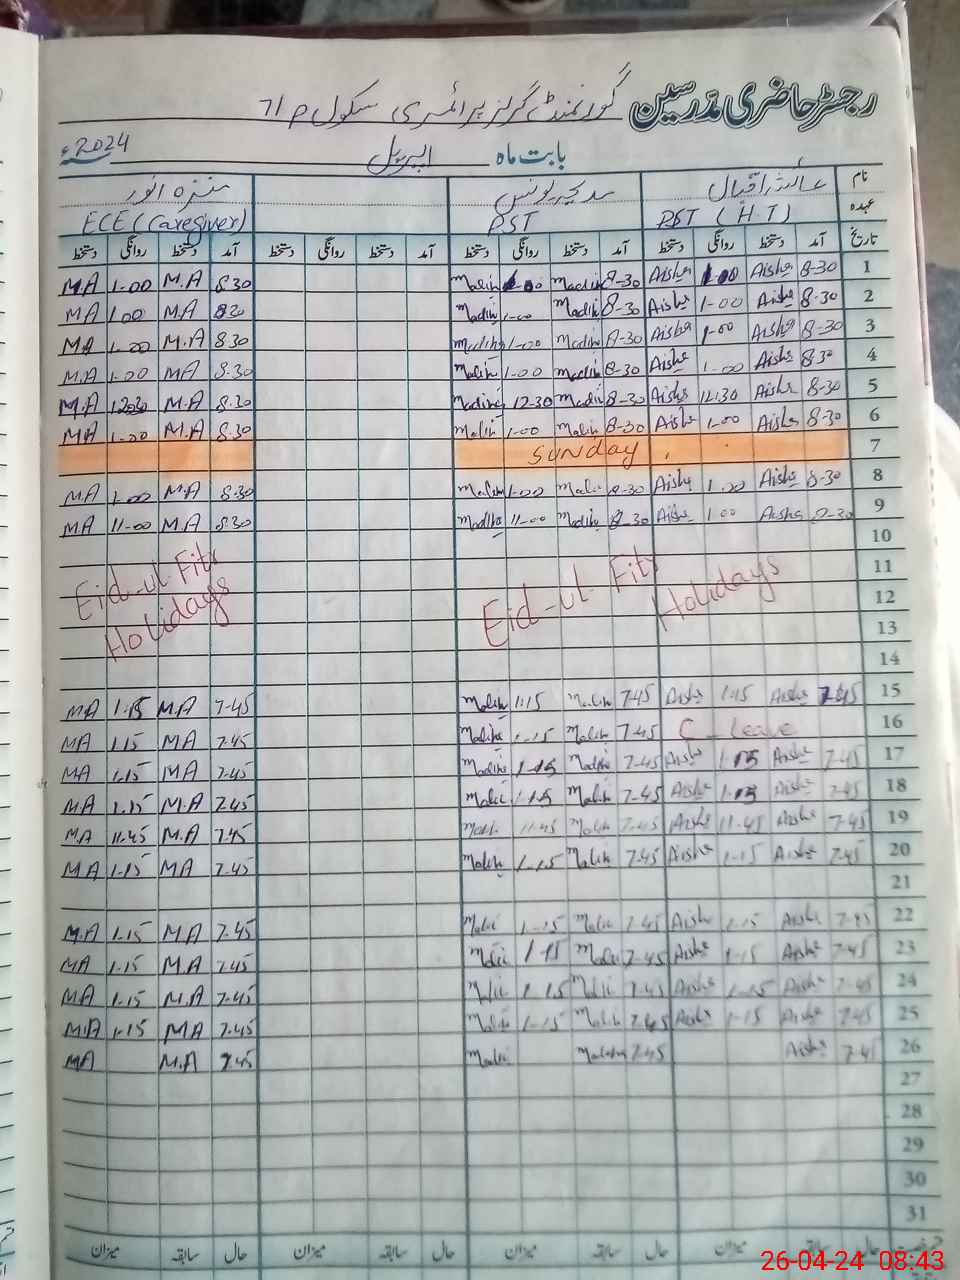 رجسٹر حاضری مدرسین گورنمنٹ گرلز پرائمری سکول 71P
بابت ماہ اپریل 2024ء
نام عائشہ اقبال مدیحہ یونس منزہ انور
عہدہ PST (H.T) PST ECE (Caregiver)
تاریخ آمد دستخط روانگی دستخط آمد دستخط روانگی دستخط آمد دستخط روانگی دستخط آمد دستخط روانگی دستخط
MA 1-00 M.A 8.30 Madih 1-00 Madih 8-30 Aisha 1-00 Aisha 8-30 1
MA 1.00 MA 830 Madiha 1-00 Madih 8-30 Aisha 1-00 Aisha 8-30 2
MA 1-00 M.A 8.30 Madiha 1-00 Madih 8-30 Aisha 1-00 Aisha 8-30 3
M.A 1-00 MA 8.30 Madih 1-00 Madih 8-30 Aisha 1-00 Aisha 8.30 4
M.A 1230 M.A 8.30 Madiha 12-30 Madih 8-30 Aisha 12.30 Aisha 8-30 5
MA 1-00 M.A 8.30 Madih 1-00 Madih 8-30 Aisha 1-00 Aisha 8.30 6
Sunday 7
M.A 1.00 M.A 8.30 Madih 1-00 Madih 8-30 Aisha 1.00 Aisha 8-30 8
MA 11-00 M.A 8.30 Madiha 11-00 Madiha 8-30 Aisha 1.00 Aisha 8-30 9
10
Eid-ul-Fitr Eid-ul Fitr 11
Holidays Holidays 12
13
14
MA 1.15 M.A 7-45 Madih 1.15 Madih 7.45 Aisha 1.15 Aisha 7.45 15
MA 1.15 MA 7.45 Madiha 1-15 Madih 7.45 C-Leave 16
MA 1.15 MA 7-45 Madiha 1-15 Madiha 7-45 Aisha 1.15 Aisha 7-45 17
MA 1.15 M.A 7.45 1-15 Madih 7-45 Aisha 1.15 Aisha 7.45 18
MA 11.45 M.A 7.45 11.45 Madih 7-45 Aisha 11.45 Aisha 7.45 19
MA 1-15 MA 7.45 Madih 1-15 Madih 7.45 Aisha 1-15 Aisha 7.45 20
21
M.A 1.15 MA 7.45 1-15 7.45 Aisha 1.15 Aisha 7-45 22
MA 1-15 M.A 7.45 1-15 7-45 Aisha 1-15 Aisha 7-45 23
MA 1-15 M.A 7-45 1-15 7.45 Aisha 1-15 Aisha 7-45 24
M.A 1-15 MA 7.45 1-15 7.45 Aisha 1-15 Aisha 7.45 25
MA M.A 7.45 7-45 Aisha 7-45 26
27
28
29
30
31
حال میزان حال سابقہ میزان حال سابقہ میزان حال سابقہ میزان
26-04-24 08:43